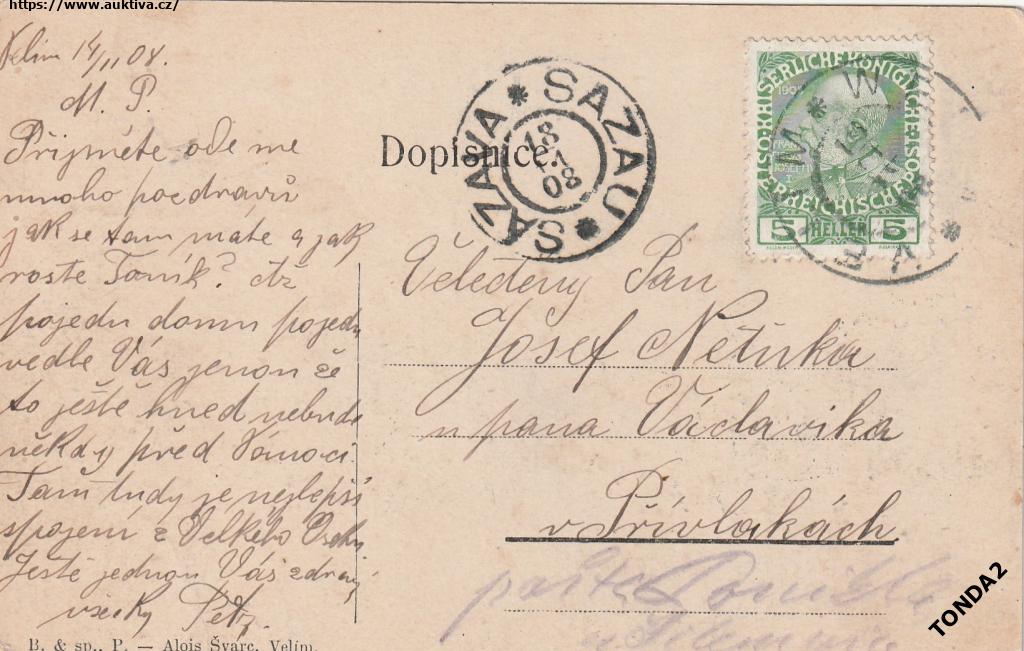 https://www.auktiva.cz/
Velim 14/11 08.
M. P.
Přijměte ode mne
mnoho pozdravů
jak se tam máte a jak
roste Toník? Až
pojedu domu pojedu
vedle Vás jenom že
to ještě hned nebude
někdy před Vánoci.
Tam tudy je nejlepší
spojení z Velkého Oseku
Ještě jednou Vás zdraví
všecky
Dopisnice.
SAZAU * SÁZAVA *
18
11
08
KAISERLICHE KÖNIGLICHE ÖSTERREICHISCHE
5 HELLER 5
Veleděný Pan
Josef Netuška
u pana Václavika
v Přívlakách
pošta
B. & sp., P. — Alois Švarc, Velím.
TONDA2